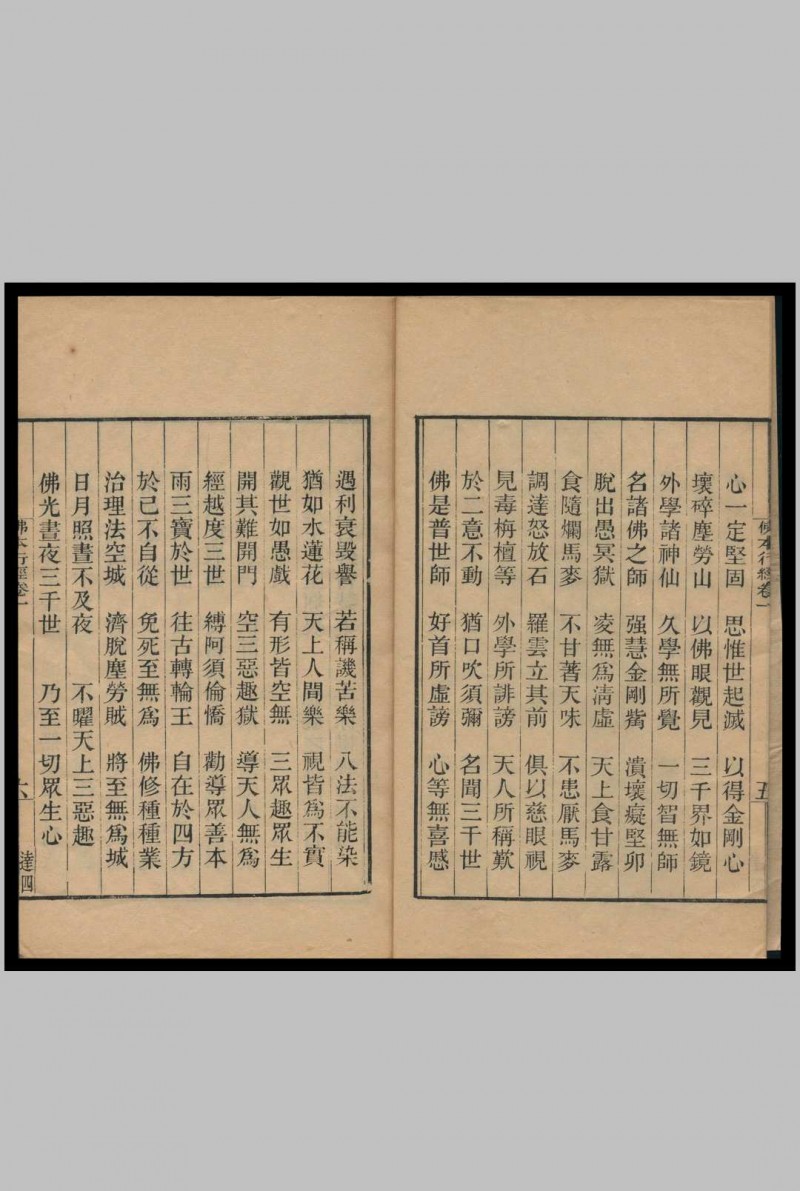 佛本行經卷一 五
心一定堅固 思惟世起滅 以得金剛心
壞碎塵勞山 以佛眼觀見 三千界如鏡
外學諸神仙 久學無所覺 一切智無師
名諸佛之師 强慧金剛觜 潰壞癡堅卵
脫出愚冥獄 凌無爲淸虛 天上食甘露
食隨爛馬麥 不甘著天味 不患厭馬麥
調達怒放石 羅雲立其前 俱以慈眼視
見毒栴檀等 外學所誹謗 天人所稱歎
於二意不動 猶口吹須彌 名聞三千世
佛是普世師 好首所虛謗 心等無喜慼
遇利衰毀譽 若稱譏苦樂 八法不能染
猶如水蓮花 天上人間樂 視皆爲不實
觀世如愚戲 有形皆空無 三眾趣眾生
開其難開門 空三惡趣獄 導天人無爲
經越度三世 縛阿須倫憍 勸導眾善本
雨三寶於世 往古轉輪王 自在於四方
於己不自從 免死至無爲 佛修種種業
治理法空城 濟脫塵勞賊 將至無爲城
日月照晝不及夜 不曜天上三惡趣
佛光晝夜三千世 乃至一切眾生心
佛本行經卷一 六 達四